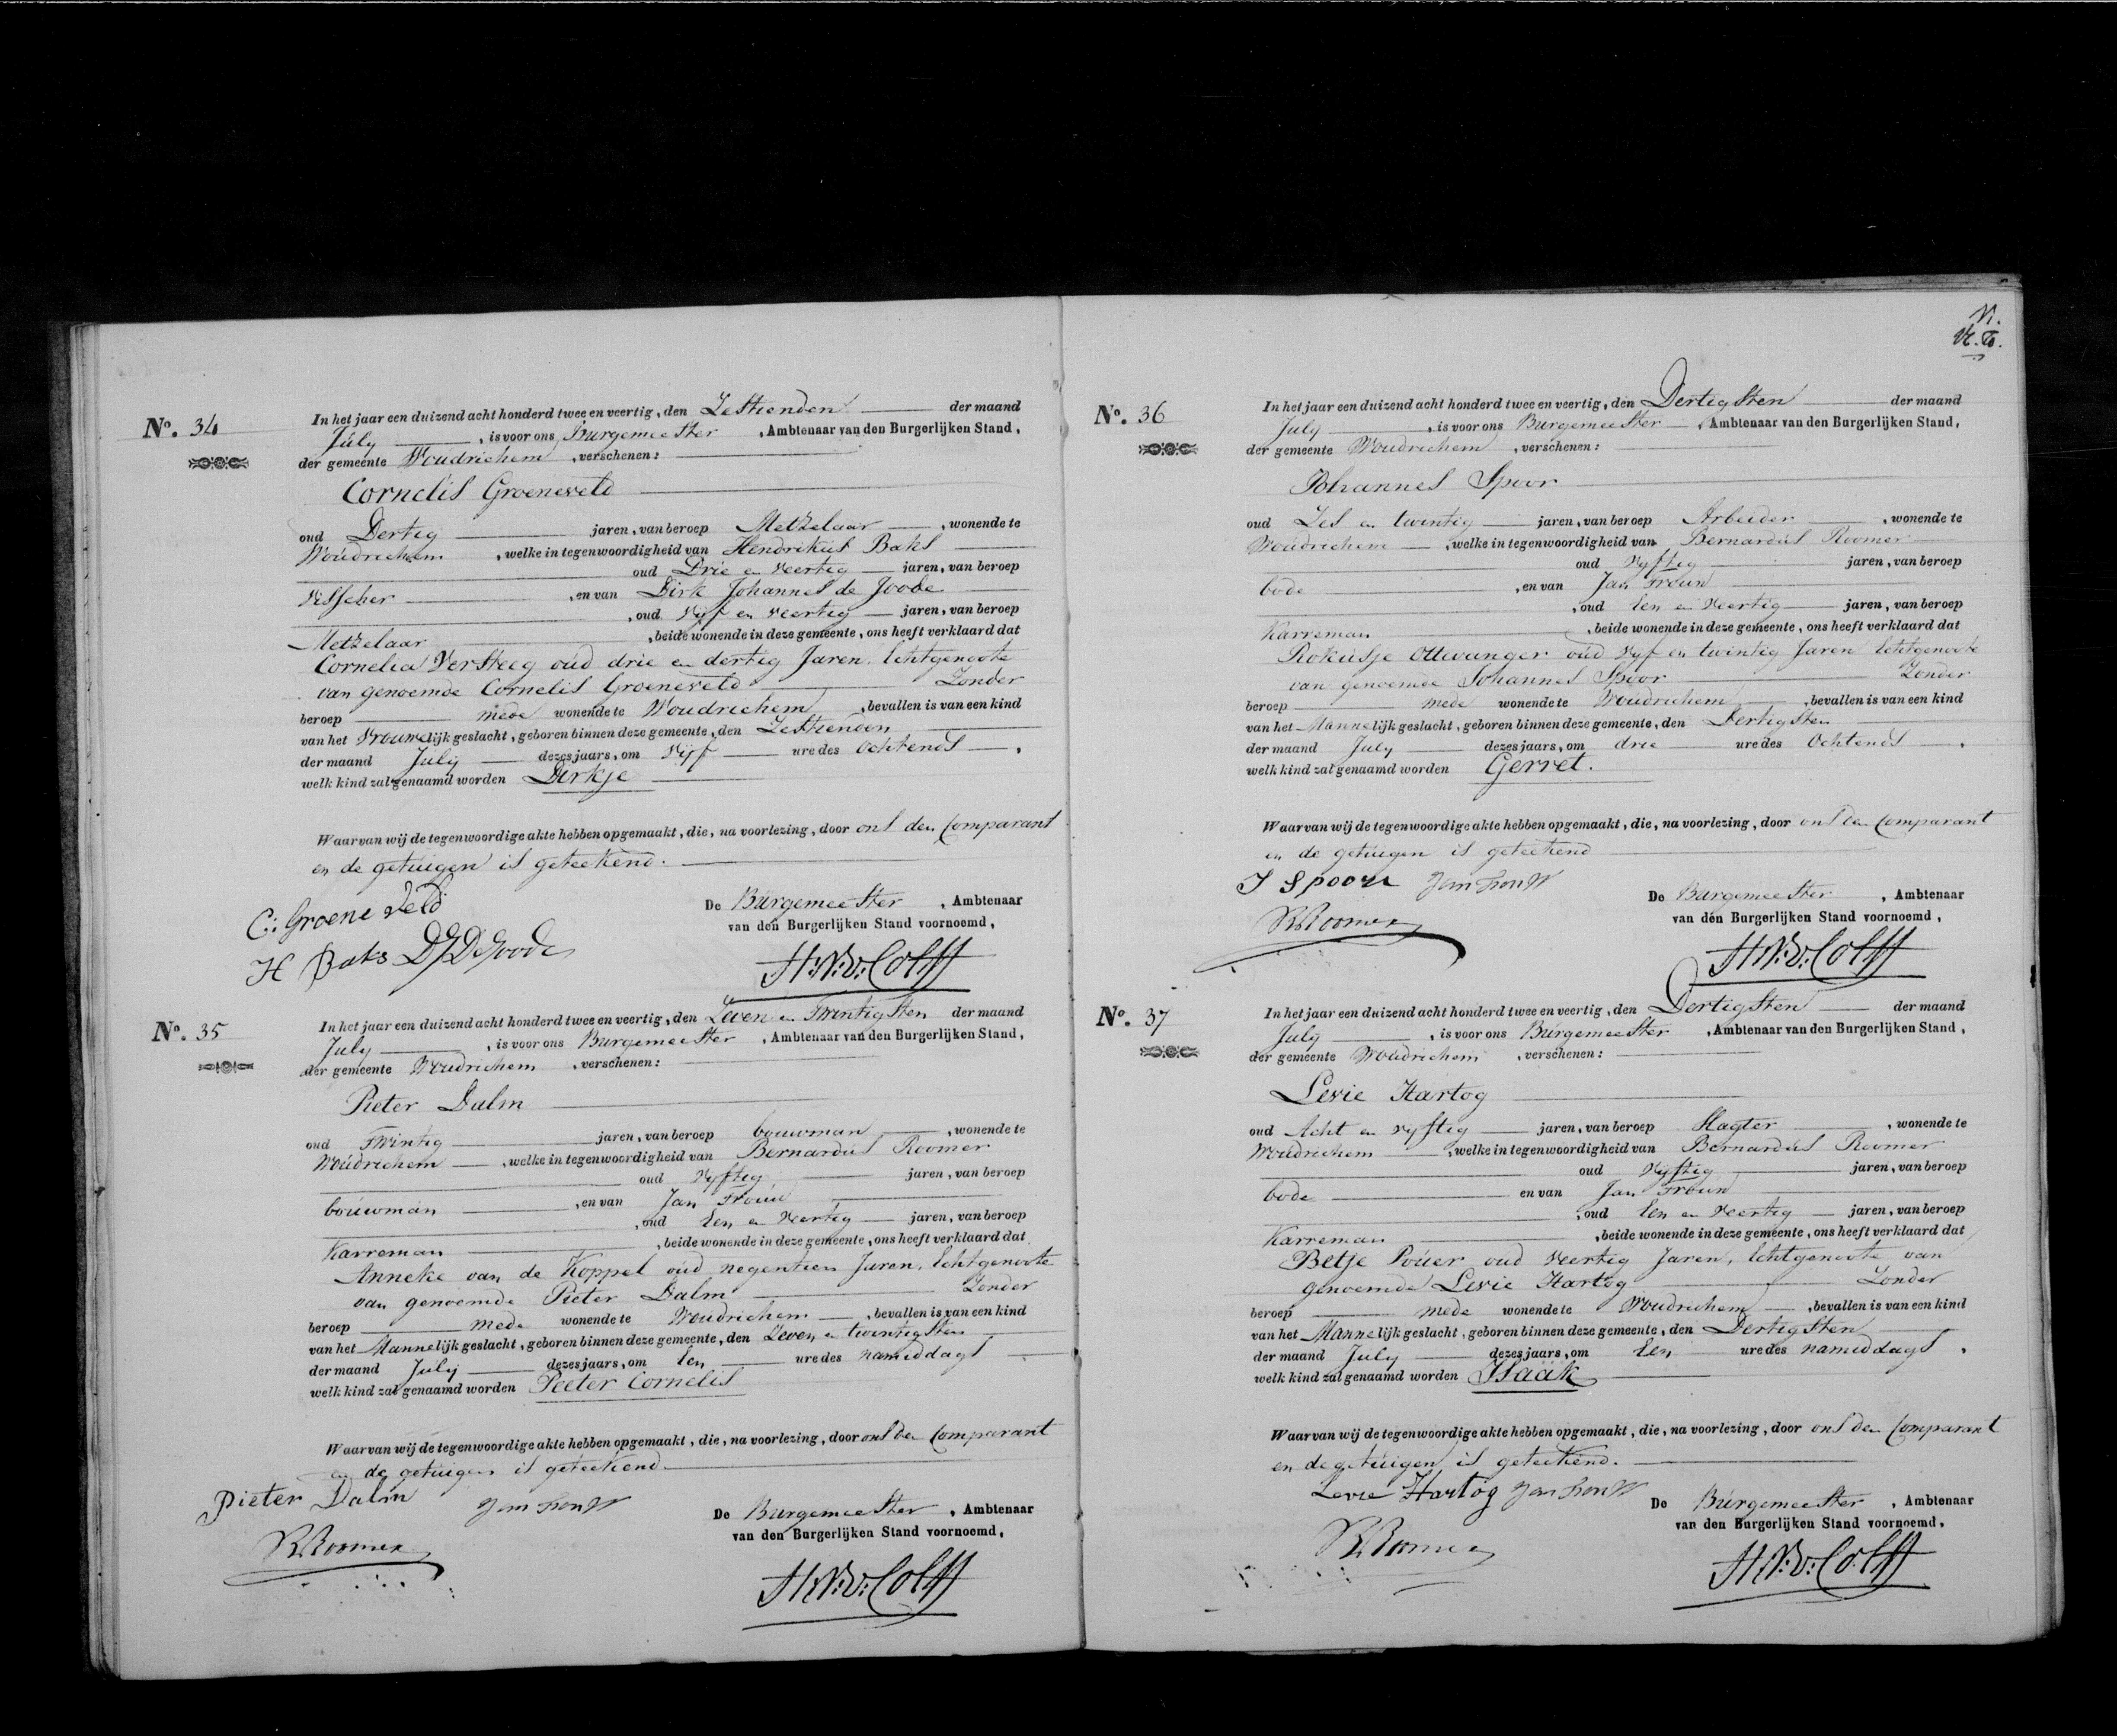 N°. 34
In het jaar een duizend acht honderd twee en veertig, den Zestienden der maand
July, is voor ons Burgemeester, Ambtenaar van den Burgerlijken Stand,
der gemeente Woudrichem, verschenen:
Cornelis Groeneveld
oud Dertig jaren, van beroep Metzelaar, wonende te
Woudrichem, welke in tegenwoordigheid van Hendrikus Baks
oud Drie en Veertig jaren, van beroep
Visscher, en van Dirk Johannes de Joode
, oud Vyf en Veertig jaren, van beroep
Metzelaar, beide wonende in deze gemeente, ons heeft verklaard dat
Cornelia Versteeg oud drie en dertig Jaren, Echtgenoote
van genoemde Cornelis Groeneveld Zonder
beroep mede wonende te Woudrichem, bevallen is van een kind
van het Vrouwelijk geslacht, geboren binnen deze gemeente, den Zestienden
der maand July dezes jaars, om Vijf ure des Ochtends,
welk kind zal genaamd worden Dirkje
Waarvan wij de tegenwoordige akte hebben opgemaakt, die, na voorlezing, door ons den Comparant
en de getuigen is geteekend.
C: Groeneveld
H Baks DJ De Joode
De Burgemeester, Ambtenaar
van den Burgerlijken Stand voornoemd,
N°. 35
In het jaar een duizend acht honderd twee en veertig, den Zeven en Twintigsten der maand
July, is voor ons Burgemeester, Ambtenaar van den Burgerlijken Stand,
der gemeente Woudrichem, verschenen:
Pieter Dalm
oud Twintig jaren, van beroep bouwman, wonende te
Woudrichem, welke in tegenwoordigheid van Bernardus Roomer
oud Vyftig jaren, van beroep
bouwman, en van Jan Trouw
, oud Een en Veertig jaren, van beroep
Karreman, beide wonende in deze gemeente, ons heeft verklaard dat
Anneke van de Koppel oud negentien Jaren, Echtgenoote
van genoemde Pieter Dalm Zonder
beroep mede wonende te Woudrichem, bevallen is van een kind
van het Mannelijk geslacht, geboren binnen deze gemeente, den Zeven en twintigsten
der maand July dezes jaars, om Een ure des namiddags
welk kind zal genaamd worden Peeter Cornelis
Waarvan wij de tegenwoordige akte hebben opgemaakt, die, na voorlezing, door ons den Comparant
en de getuigen is geteekend
Pieter Dalm Jan Trouw
BRoomer
De Burgemeester, Ambtenaar
van den Burgerlijken Stand voornoemd,
N°. 36
In het jaar een duizend acht honderd twee en veertig, den Dertigsten der maand
July, is voor ons Burgemeester, Ambtenaar van den Burgerlijken Stand,
der gemeente Woudrichem, verschenen:
Johannes Spoor
oud Zes en twintig jaren, van beroep Arbeider, wonende te
Woudrichem, welke in tegenwoordigheid van Bernardus Roomer
oud Vyftig jaren, van beroep
bode, en van Jan Trouw
, oud Een en Veertig jaren, van beroep
Karreman, beide wonende in deze gemeente, ons heeft verklaard dat
Rokusje Ottevanger oud Vyf en twintig Jaren Echtgenoote
van genoemde Johannes Spoor Zonder
beroep mede wonende te Woudrichem, bevallen is van een kind
van het Mannelijk geslacht, geboren binnen deze gemeente, den Dertigsten
der maand July dezes jaars, om drie ure des Ochtends,
welk kind zal genaamd worden Gerret.
Waarvan wij de tegenwoordige akte hebben opgemaakt, die, na voorlezing, door ons den Comparant
en de getuigen is geteekend
J Spoor Jan Trouw
BRoomer
De Burgemeester, Ambtenaar
van den Burgerlijken Stand voornoemd,
N°. 37
In het jaar een duizend acht honderd twee en veertig, den Dertigsten der maand
July, is voor ons Burgemeester, Ambtenaar van den Burgerlijken Stand,
der gemeente Woudrichem, verschenen:
Levie Hartog
oud Acht en vyftig jaren, van beroep Slagter, wonende te
Woudrichem, welke in tegenwoordigheid van Bernardus Roomer
oud Vyftig jaren, van beroep
bode en van Jan Trouw
, oud Een en Veertig jaren, van beroep
Karreman, beide wonende in deze gemeente, ons heeft verklaard dat
Betje Pouer oud Veertig Jaren, Echtgenoote van
genoemde Levie Hartog Zonder
beroep mede wonende te Woudrichem, bevallen is van een kind
van het Mannelijk geslacht, geboren binnen deze gemeente, den Dertigsten
der maand July dezes jaars, om Een ure des namiddags,
welk kind zal genaamd worden Isaäk
Waarvan wij de tegenwoordige akte hebben opgemaakt, die, na voorlezing, door ons den Comparant
en de getuigen is geteekend.
Levie Hartog Jan Trouw
BRoomer
De Burgemeester, Ambtenaar
van den Burgerlijken Stand voornoemd,